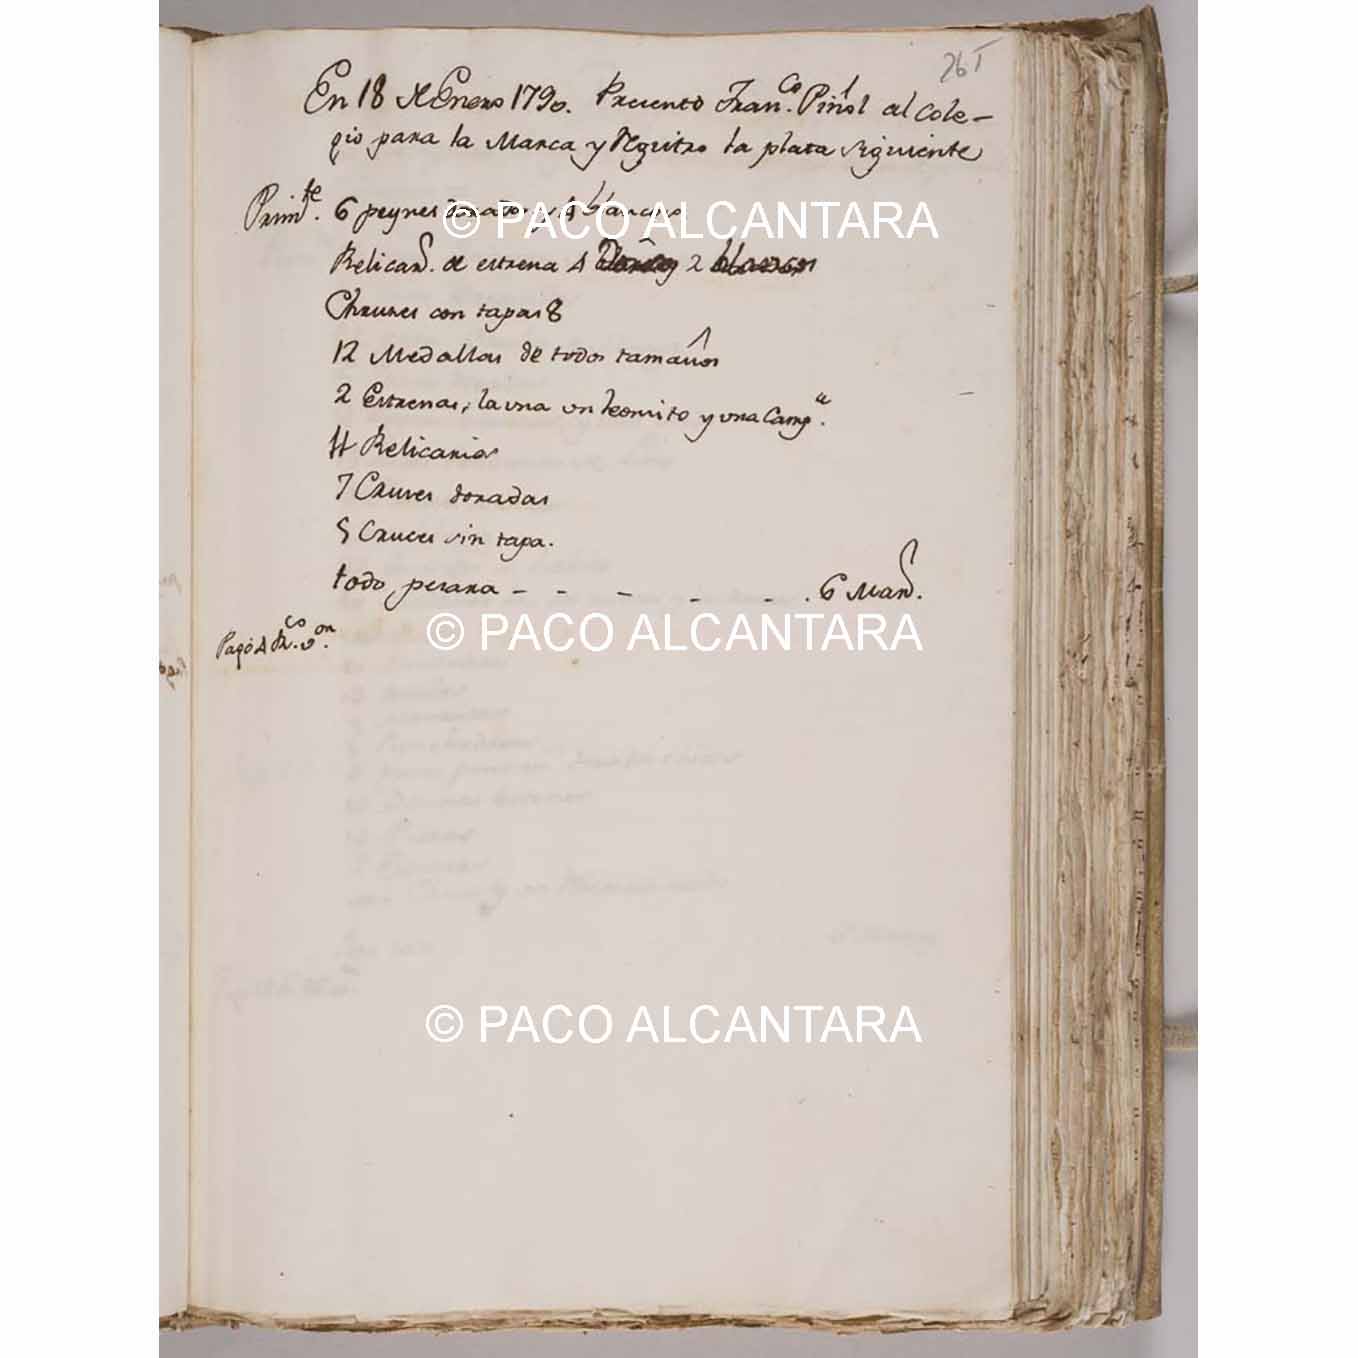 261
En 18 de Enero 1790. Presento Fran.co Piñol al Cole-
gio para la Marca y Rguitro la plata siguiente
Prim.te 6 peynes dorados y 4 blancos
© PACO ALCANTARA
Relicar.s de estrena 4 2
Chruzes con tapas 8
12 Medallas de todos tamaños
2 Estrenas, la una un leonsito y una Camp.a
4 Relicarios
7 Cruses doradas
5 Cruces sin tapa.
todo pesara - - - - - . 6 Mar.s
Pagó 4 R.co v.on
© PACO ALCANTARA
© PACO ALCANTARA